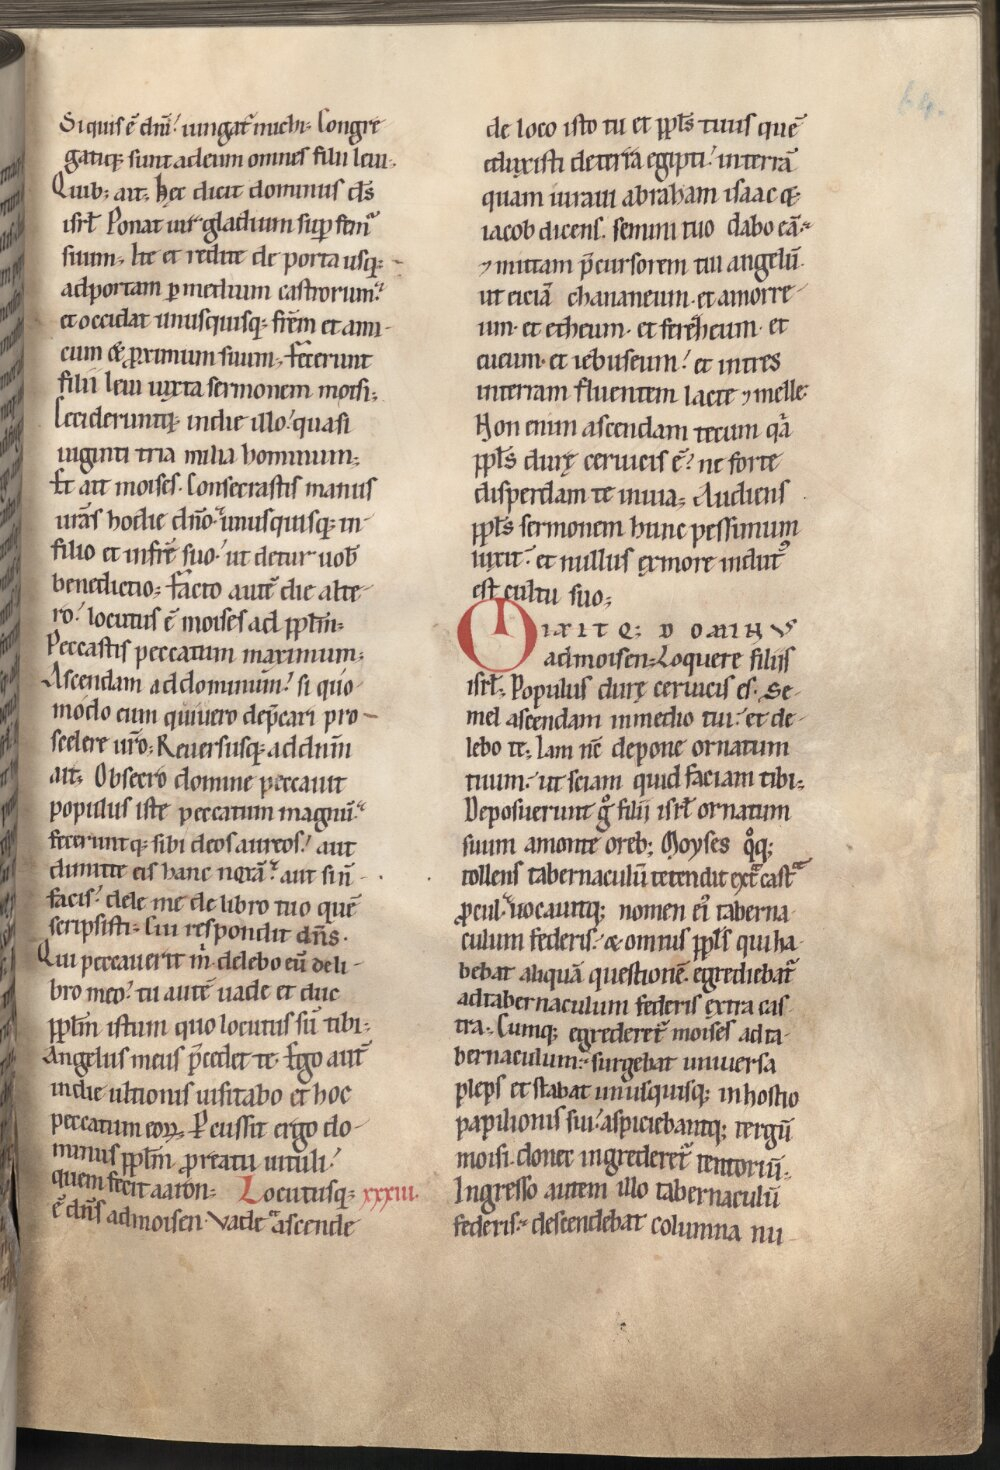 64.
Si quis ē dn̄i! iungat᷑ michi. Congre
gatiq; sunt ad eum omnes filii leui.
Quib; ait. hęc dicit dominus d̄s
isrł. Ponat uir gladium sup femᷓ
suum. Ite et redite de porta usq;
ad portam p medium castrorum.
et occidat unusquisq; frēm et ami
cum & proximum suum. Fecerunt
filii leui iuxta sermonem moisi.
Cecideruntq; in die illo quasi
uiginti tria milia hominum;
Et ait moises. Consecrastis manus
urās hodie dn̄o unusquisq; in
filio et in frē suo. ut detur uob̄
benedictio; Facto autē die alte
ro! locutus ē moises ad ppłm;
Peccastis peccatum maximum;
Ascendam ad dominum! si quo
modo eum quiuero dep̄cari pro
scelere uro; Reuersusq; ad dn̄m
ait; Obsecro domine peccauit
populus iste peccatum magnū
feceruntq; sibi deos aureos! aut
dimitte eis hanc noxā aut si n̄
facis! dele me de libro tuo quē
scripsisti. Cui respondit dn̄s.
Qui peccauerit m̍ delebo eū de li
bro meo! tu autē uade et duc
ppłm istum quo locutus sū tibi;
Angelus meus p̄cedet te. Ego aut̄
in die ultionis uisitabo et hoc
peccatum eoꝝ. Pcussit ergo do
minus ppłm pro reatu uituli!
quem fecit aaron; Locutusq; xxxiii.
ē dn̄s ad moisen. Vade ascende
de loco isto tu et ppłs tuus quē
eduxisti de terra egipti! in terrā
quam iuraui abraham isaac &
iacob dicens. semini tuo dabo eā.
⁊ mittam p̄cursorem tui angelū.
ut eiciā chananeum. et amorre
um. et etheum. et ferezheum. et
eueum. et iebuseum! et intres
in terram fluentem lacte ⁊ melle.
Non enim ascendam tecum qᷓ
ppłs durę ceruicis ē! ne forte
disperdam te in uia; Audiens
ppłs sermonem hunc pessimum
luxit. et nullus ex more indut᷒
est cultu suo;
DIXITQ; DOMINVS
ad moisen. Loquere filiis
isrł. Populus durę ceruicis es. Se
mel ascendam in medio tui! et de
lebo te. Iam nc̄ depone ornatum
tuum. ut sciam quid faciam tibi;
Deposuerunt gͦ filii isrł ornatum
suum a monte oreb; Moyses qͦq;
tollens tabernaculū tetendit extᷓ castᷓ
procul. uocauitq; nomen ei᷒ taberna
culum federis. & omnis ppłs qui ha
bebat aliquā questionē. egrediebat᷑
ad tabernaculum federis extra cas
tra. Cumq; egrederet᷑ moises ad ta
bernaculum. surgebat uniuersa
pleps et stabat unusquisq; in hostio
papilionis sui! aspiciebantq; tergū
moisi. donec ingrederet᷑ tentoriū.
Ingresso autem illo tabernaculū
federis. descendebat columna nu